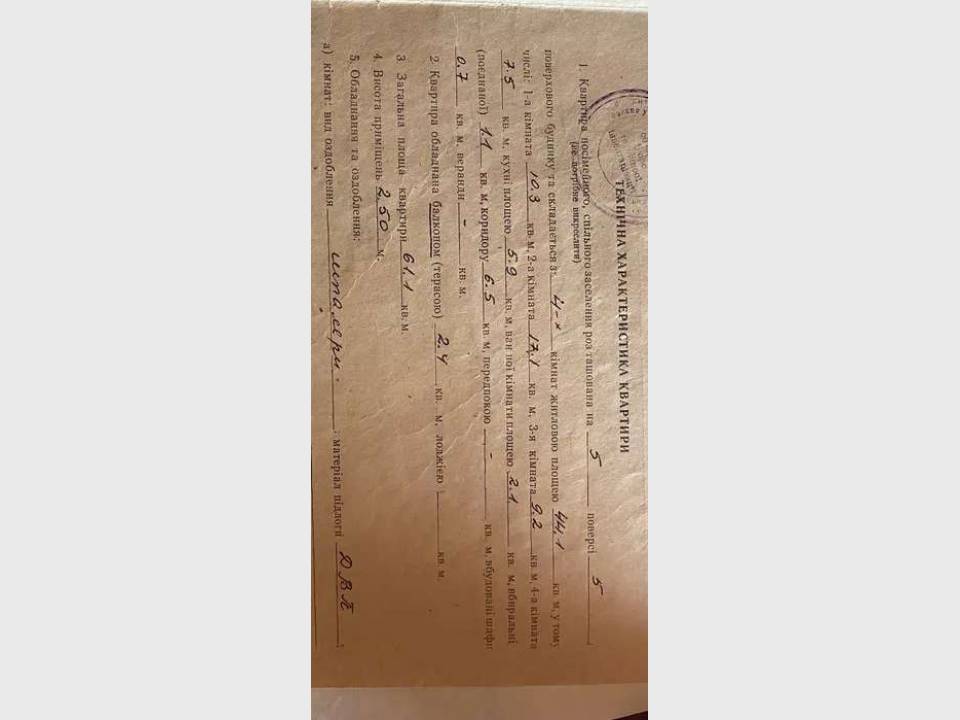 ТЕХНІЧНА ХАРАКТЕРИСТИКА КВАРТИРИ
1. Квартира посімейного, спільного заселення розташована на 5 поверсі 5
(не потрібне викреслити)
поверхового будинку та складається з: 4-х кімнат житловою площею 44,1 кв. м, у тому
числі: 1-а кімната 10.3 кв. м, 2-а кімната 17,1 кв. м, 3-я кімната 9.2 кв. м, 4-а кімната
7.5 кв. м, кухні площею 5.9 кв. м, ванної кімнати площею 2.1 кв. м, вбиральні
(поєднаної) 1.1 кв. м, коридору 6.5 кв. м, передпокою - кв. м, вбудовані шафи
0.7 кв. м, веранди - кв. м.
2. Квартира обладнана балконом (терасою) 2.4 кв. м, лоджією кв. м.
3. Загальна площа квартири 61.1 кв. м.
4. Висота приміщень 2,50 м.
5. Обладнання та оздоблення:
а) кімнат: вид оздоблення шпалери ; матеріал підлоги ДВП ;